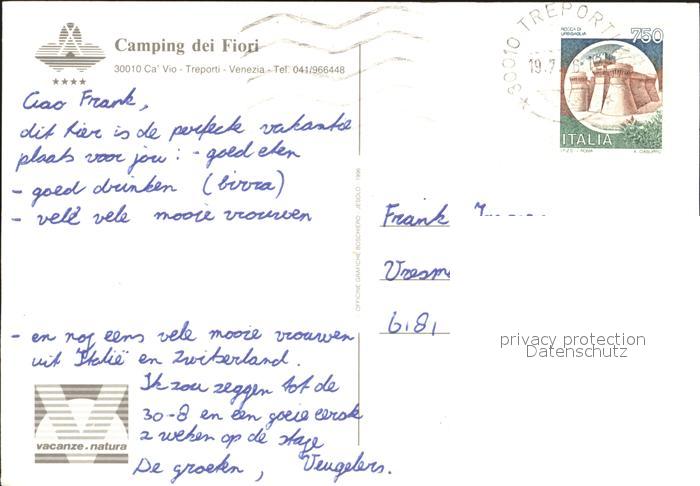 Camping dei Fiori
30010 Ca' Vio - Treporti - Venezia - Tel. 041/966448
Ciao Frank,
dit hier is de perfecte vakantie
plaats voor jou: - goed eten
- goed drinken (birra)
- vele vele mooie vrouwen
- en nog eens vele mooie vrouwen
uit Italië en Zwitserland.
Ik zou zeggen tot de
30-8 en een goeie eerste
2 weken op de stage
De groeten, Veugelers.
vacanze.natura
OFFICINE GRAFICHE BOSCHIERO - JESOLO - 1996
30010 TREPORTI
19.7
ROCCA DI
URBISAGLIA
750
ITALIA
I.P.Z.S. - ROMA
Frank
6181
privacy protection
Datenschutz